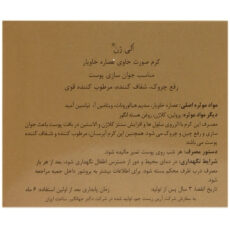 الی ژن®
کرم صورت حاوی عصاره خاویار
مناسب جوان سازی پوست
رفع چروک، شفاف کننده، مرطوب کننده قوی
مواد موثره اصلی: عصاره خاویار، سدیم هیالورونات، ویتامین آ، نیاسین آمید
دیگر مواد موثره: پروتئین، کلاژن، روغن هسته انگور
مصرف این کرم با بازسازی سلول ها و افزایش سنتز کلاژن و الاستین در بافت پوست باعث جوان
سازی و رفع چین و چروک می شود. همچنین این کرم آبرسان و مرطوب کننده و شفاف کننده
قوی می باشد.
دستور مصرف: هر شب روی پوست تمیز مالیده شود.
شرایط نگهداری: در دمای محیط و دور از دسترس اطفال نگهداری شود.
مصرف درب محکم بسته شود. برای اطلاعات بیشتر به بروشور داخل جعبه مراجعه
شود.
تاریخ انقضا: ۳ سال پس از تولید
زمان پایداری بعد از اولین استفاده: ۶ ماه